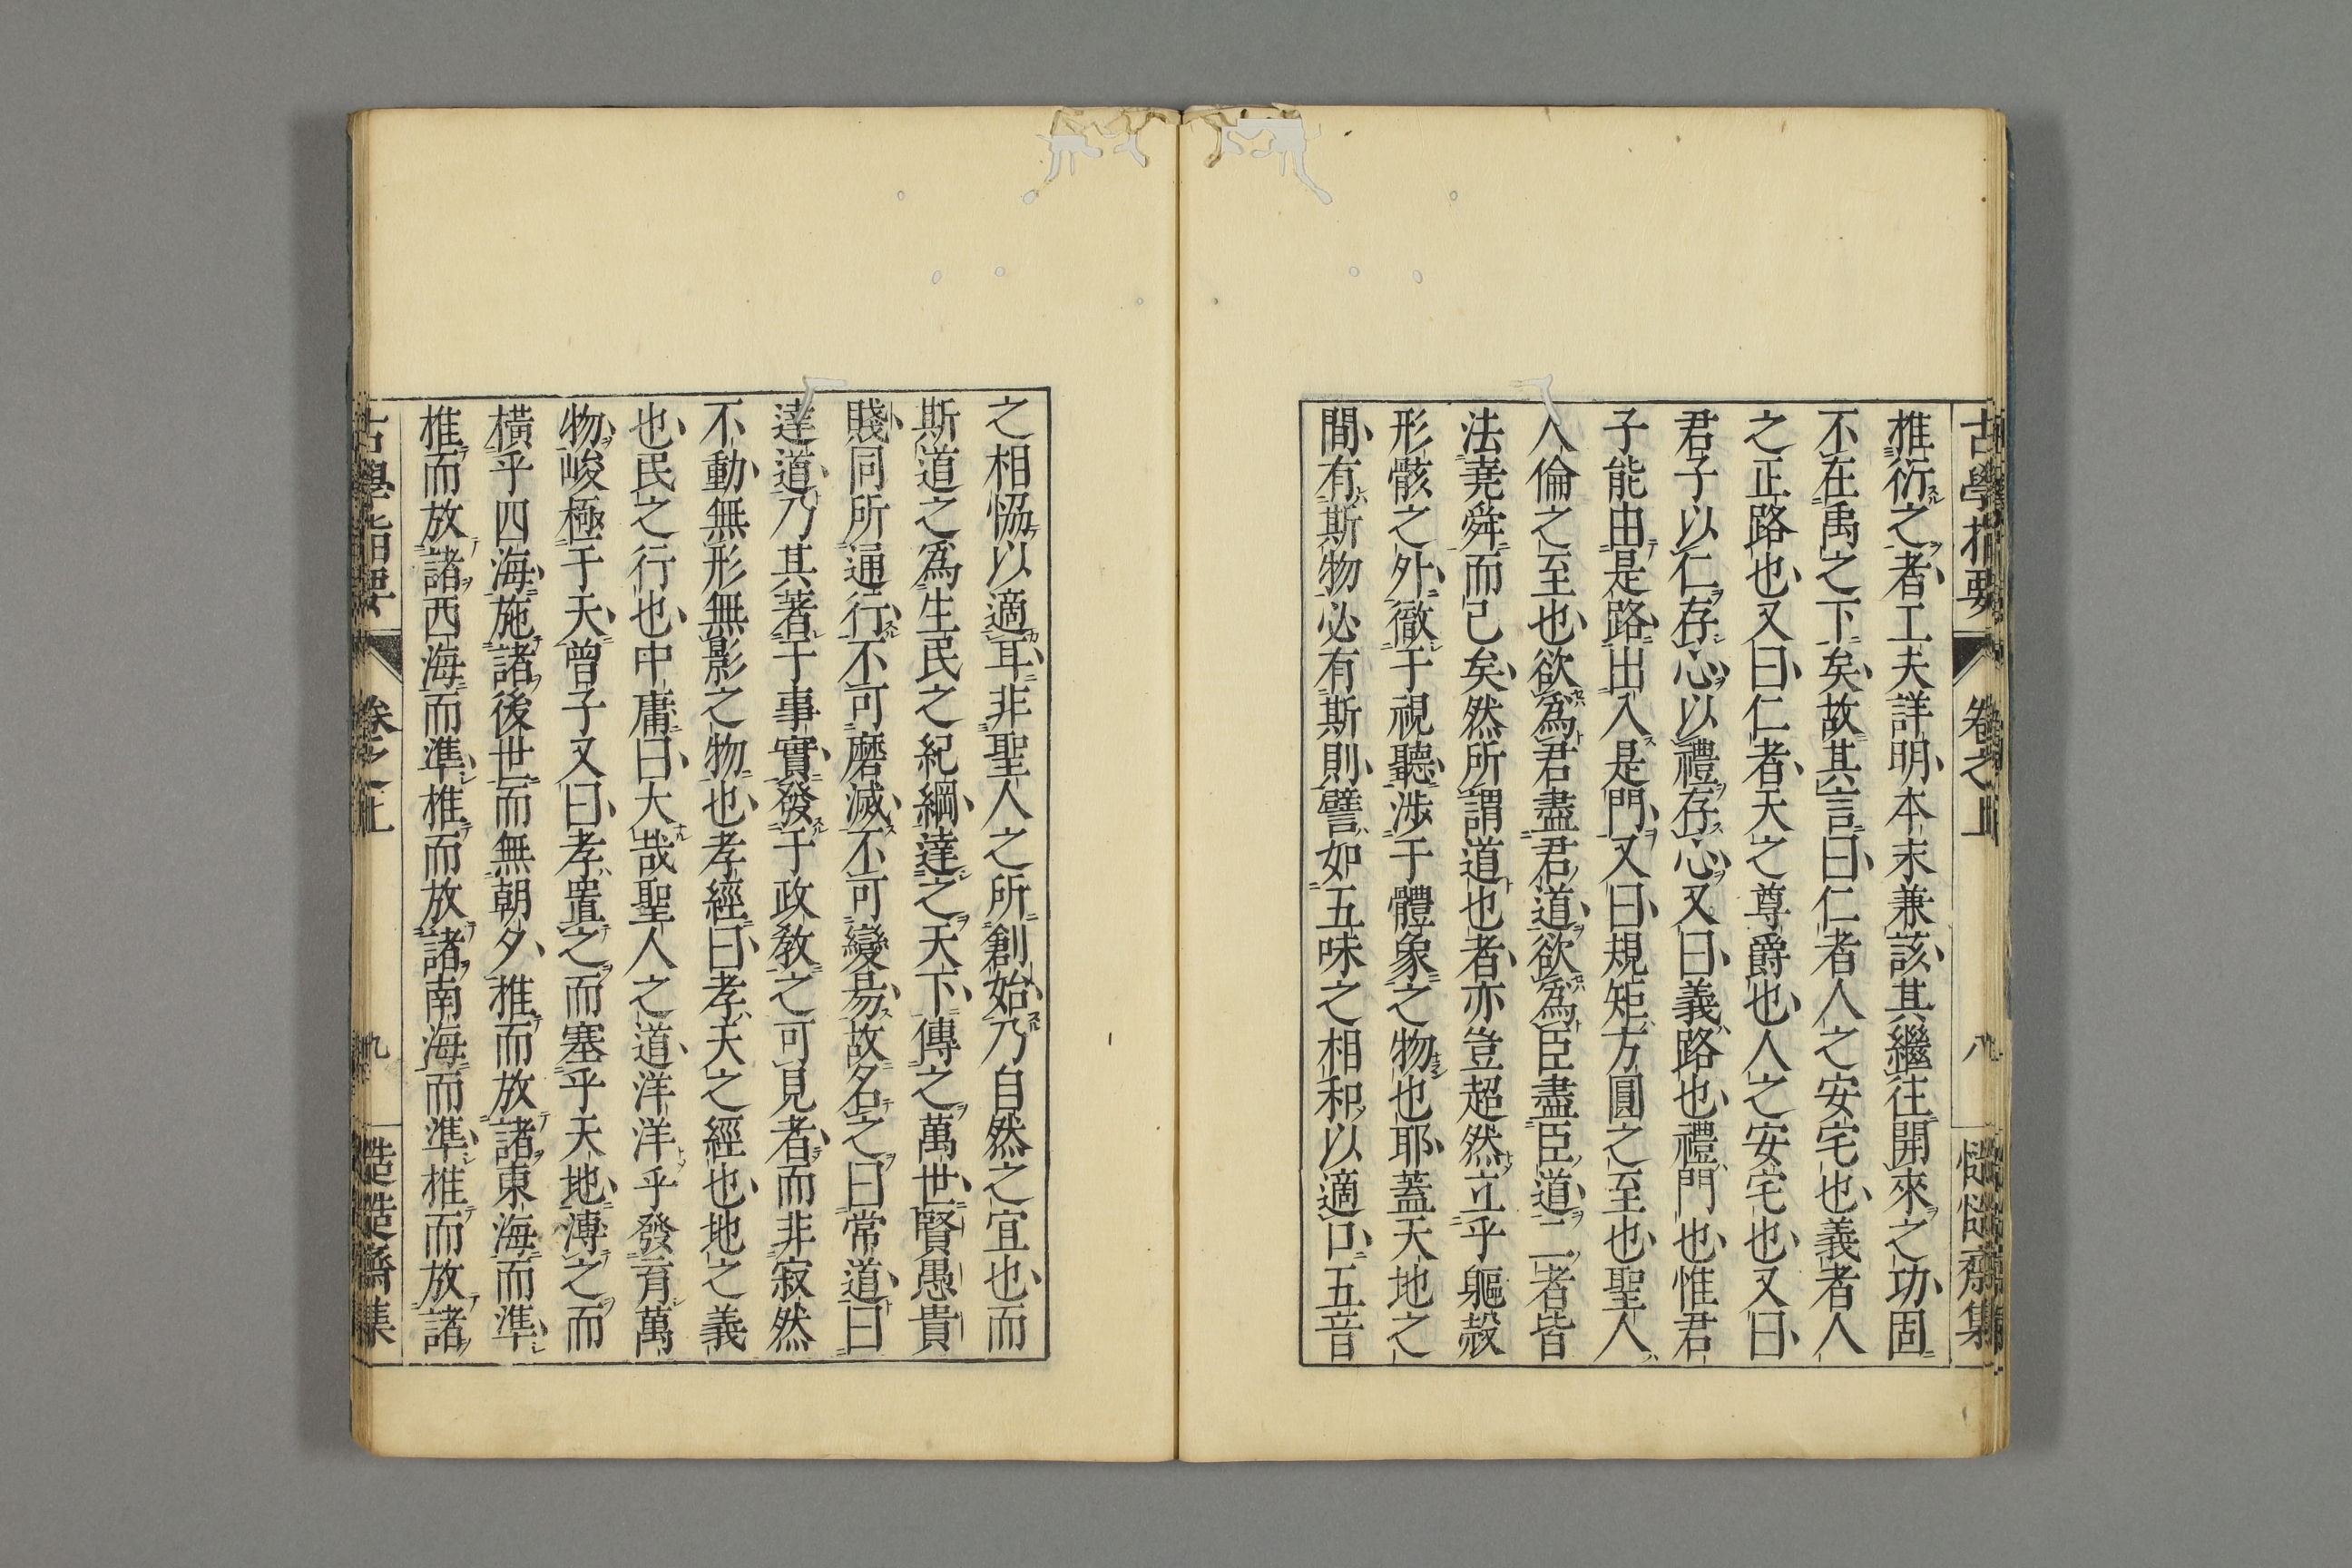 古學指要 卷之上 八 慥慥齋集
推衍之者工夫詳明本末兼該其繼往開來之功固
不在禹之下矣故其言曰仁者人之安宅也義者人
之正路也又曰仁者天之尊爵也人之安宅也又曰
君子以仁存心以禮存心又曰義路也禮門也惟君
子能由是路出入是門又曰規矩方圓之至也聖人
人倫之至也欲爲君盡君道欲爲臣盡臣道二者皆
法堯舜而已矣然所謂道也者亦豈超然立乎軀殼
形骸之外徹于視聽渉于體象之物也耶蓋天地之
間有斯物必有斯則譬如五味之相和以適口五音
之相恊以適耳非聖人之所創始乃自然之宜也而
斯道之爲生民之紀綱達之天下傳之萬世賢愚貴
賤同所通行不可磨滅不可變易故名之曰常道曰
達道乃其著于事實發于政教之可見者而非寂然
不動無形無影之物也孝經曰孝天之經也地之義
也民之行也中庸曰大哉聖人之道洋洋乎發育萬
物峻極于天曾子又曰孝置之而塞乎天地溥之而
橫乎四海施諸後世而無朝夕推而放諸東海而準
推而放諸西海而準推而放諸南海而準推而放諸
古學指要 卷之上 九 慥慥齋集